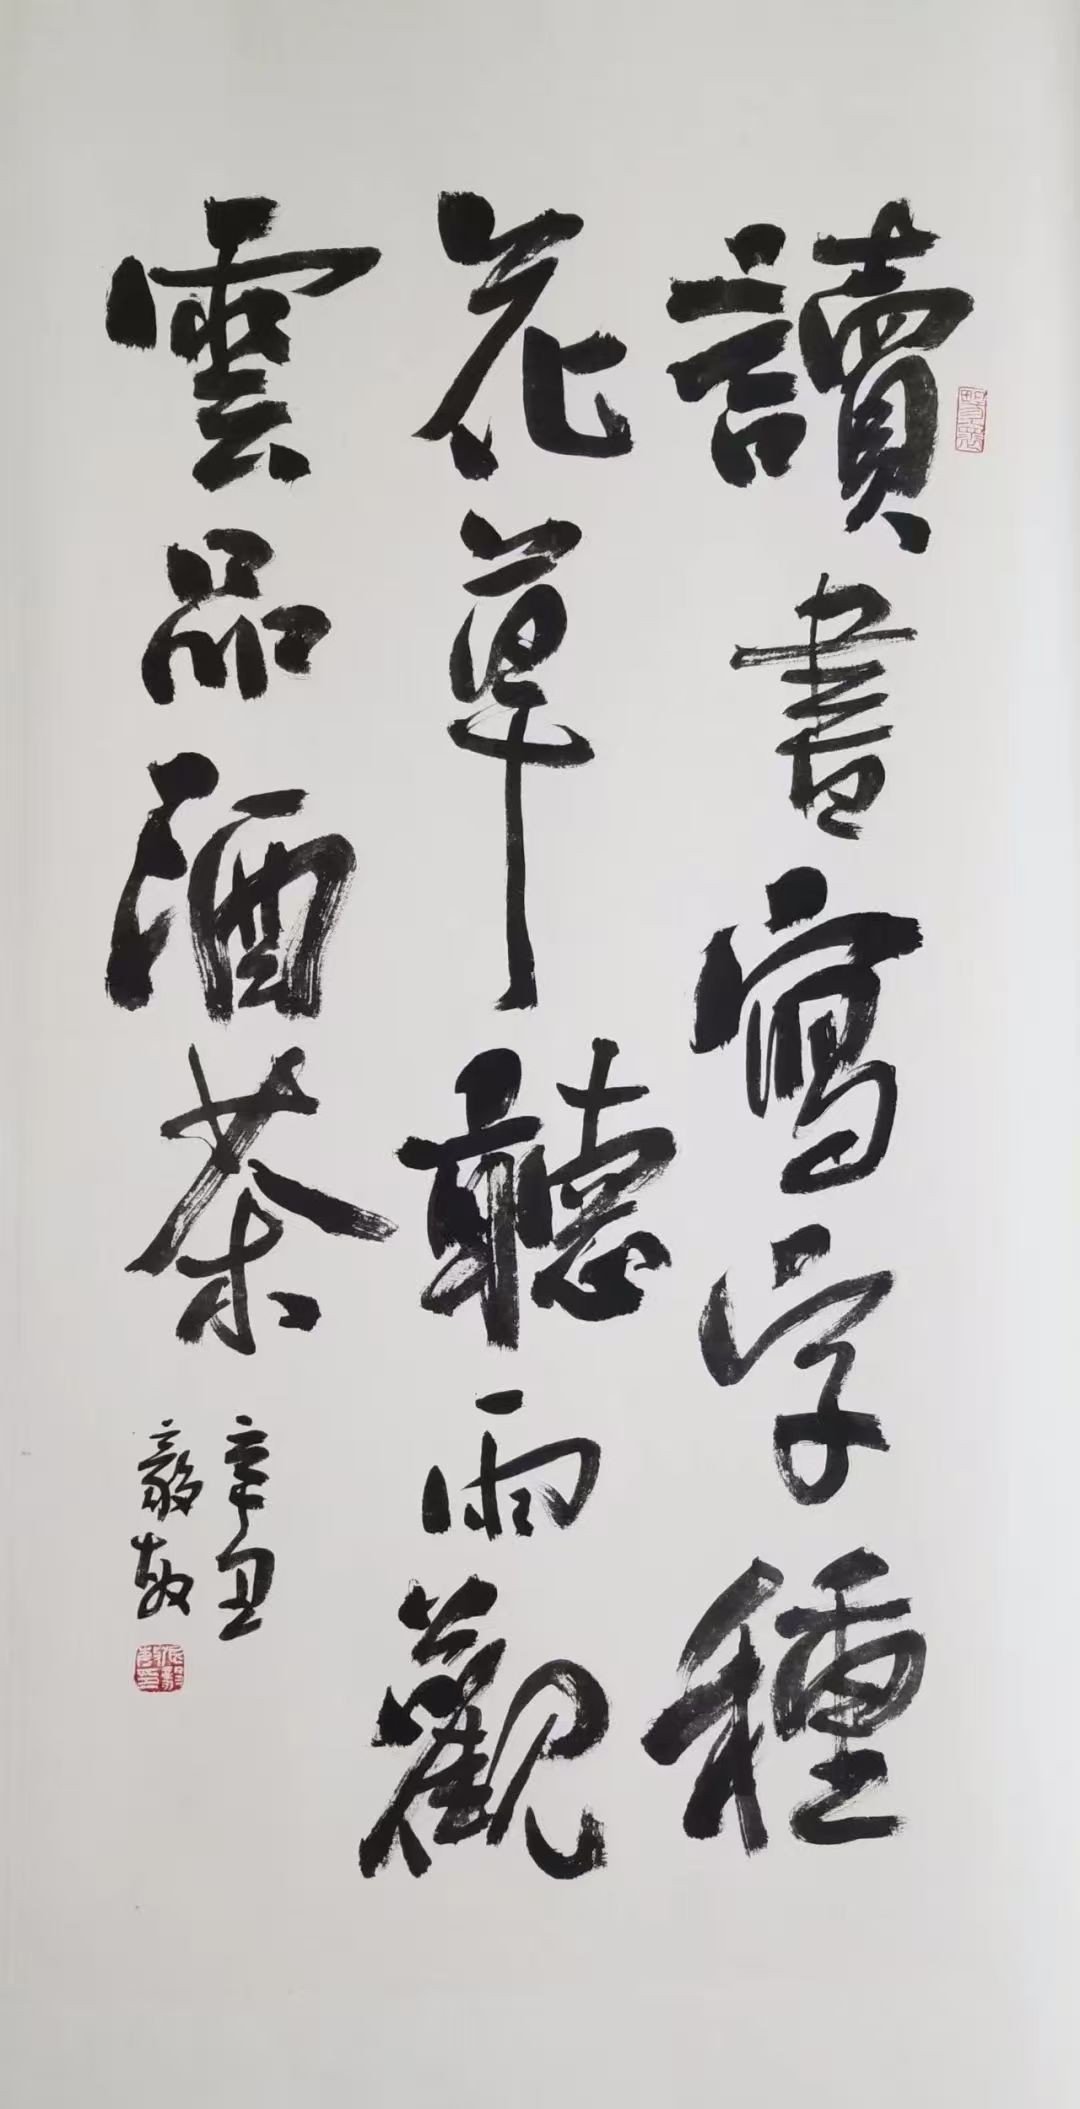 讀書寫字種
花草聽雨觀
雲品酒茶
辛丑
毅敏